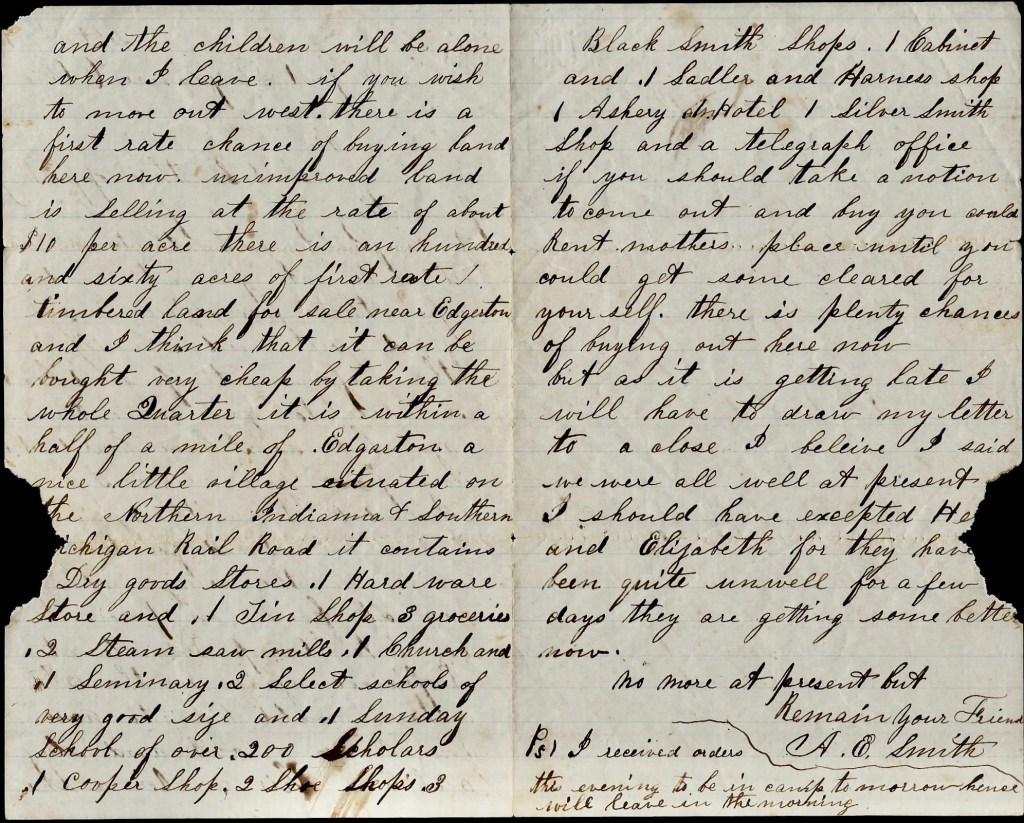 and the children will be alone
when I leave. if you wish
to move out west. there is a
first rate chance of buying land
here now. unimproved land
is Selling at the rate of about
$10 per acre there is an hundred
and sixty acres of first rate
timbered land for sale near Edgerton
and I think that it can be
bought very cheap by taking the
whole Quarter it is within a
half of a mile of Edgarton a
nice little village situated on
the Northern Indianna & Southern
ichigan Rail Road it contains
Dry goods Stores .1 Hard ware
Store and .1 Tin Shop 3 groceries
.2 Steam saw mills .1 Church and
.1 Seminary .2 Select schools of
very good size and .1 Sunday
School of over 200 Scholars
.1 Cooper Shop. 2 Shoe Shops .3
Black Smith Shops. 1 Cabinet
and .1 Sadler and Harness shop
1 Ashery Hotel 1 Silver Smith
Shop and a telegraph office
if you should take a notion
to come out and buy you could
Rent mothers place until you
could get some cleared for
your self. there is plenty chances
of buying out here now
but as it is getting late I
will have to draw my letter
to a close I beleive I said
we were all well at present
I should have excepted He
and Elizabeth for they have
been quite unwell for a few
days they are getting some better
now.
no more at present but
Remain your Friend
A. E. Smith
Ps) I received orders
this evening to be in camp to morrow hence
will leave in the morning